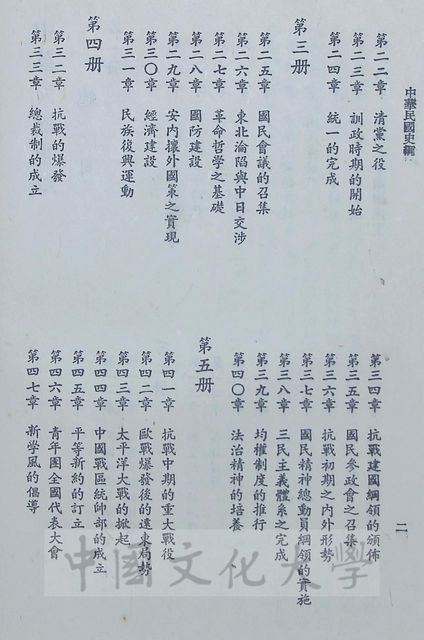 中華民國史綱
第二二章 清黨之役
第二三章 訓政時期的開始
第二四章 統一的完成
第三册
第二五章 國民會議的召集
第二六章 東北淪陷與中日交涉
第二七章 革命哲學之基礎
第二八章 國防建設
第二九章 安內攘外國策之實現
第三〇章 經濟建設
第三一章 民族復興運動
第四册
第三二章 抗戰的爆發
第三三章 總裁制的成立
第三四章 抗戰建國綱領的頒佈
第三五章 國民參政會之召集
第三六章 抗戰初期之內外形勢
第三七章 國民精神總動員綱領的實施
第三八章 三民主義體系之完成
第三九章 均權制度的推行
第四〇章 法治精神的培養
第五册
第四一章 抗戰中期的重大戰役
第四二章 歐戰爆發後的遠東局勢
第四三章 太平洋大戰的掀起
第四四章 中國戰區統帥部的成立
第四五章 平等新約的訂立
第四六章 青年團全國代表大會
第四七章 新學風的倡導
二
中國文化大學